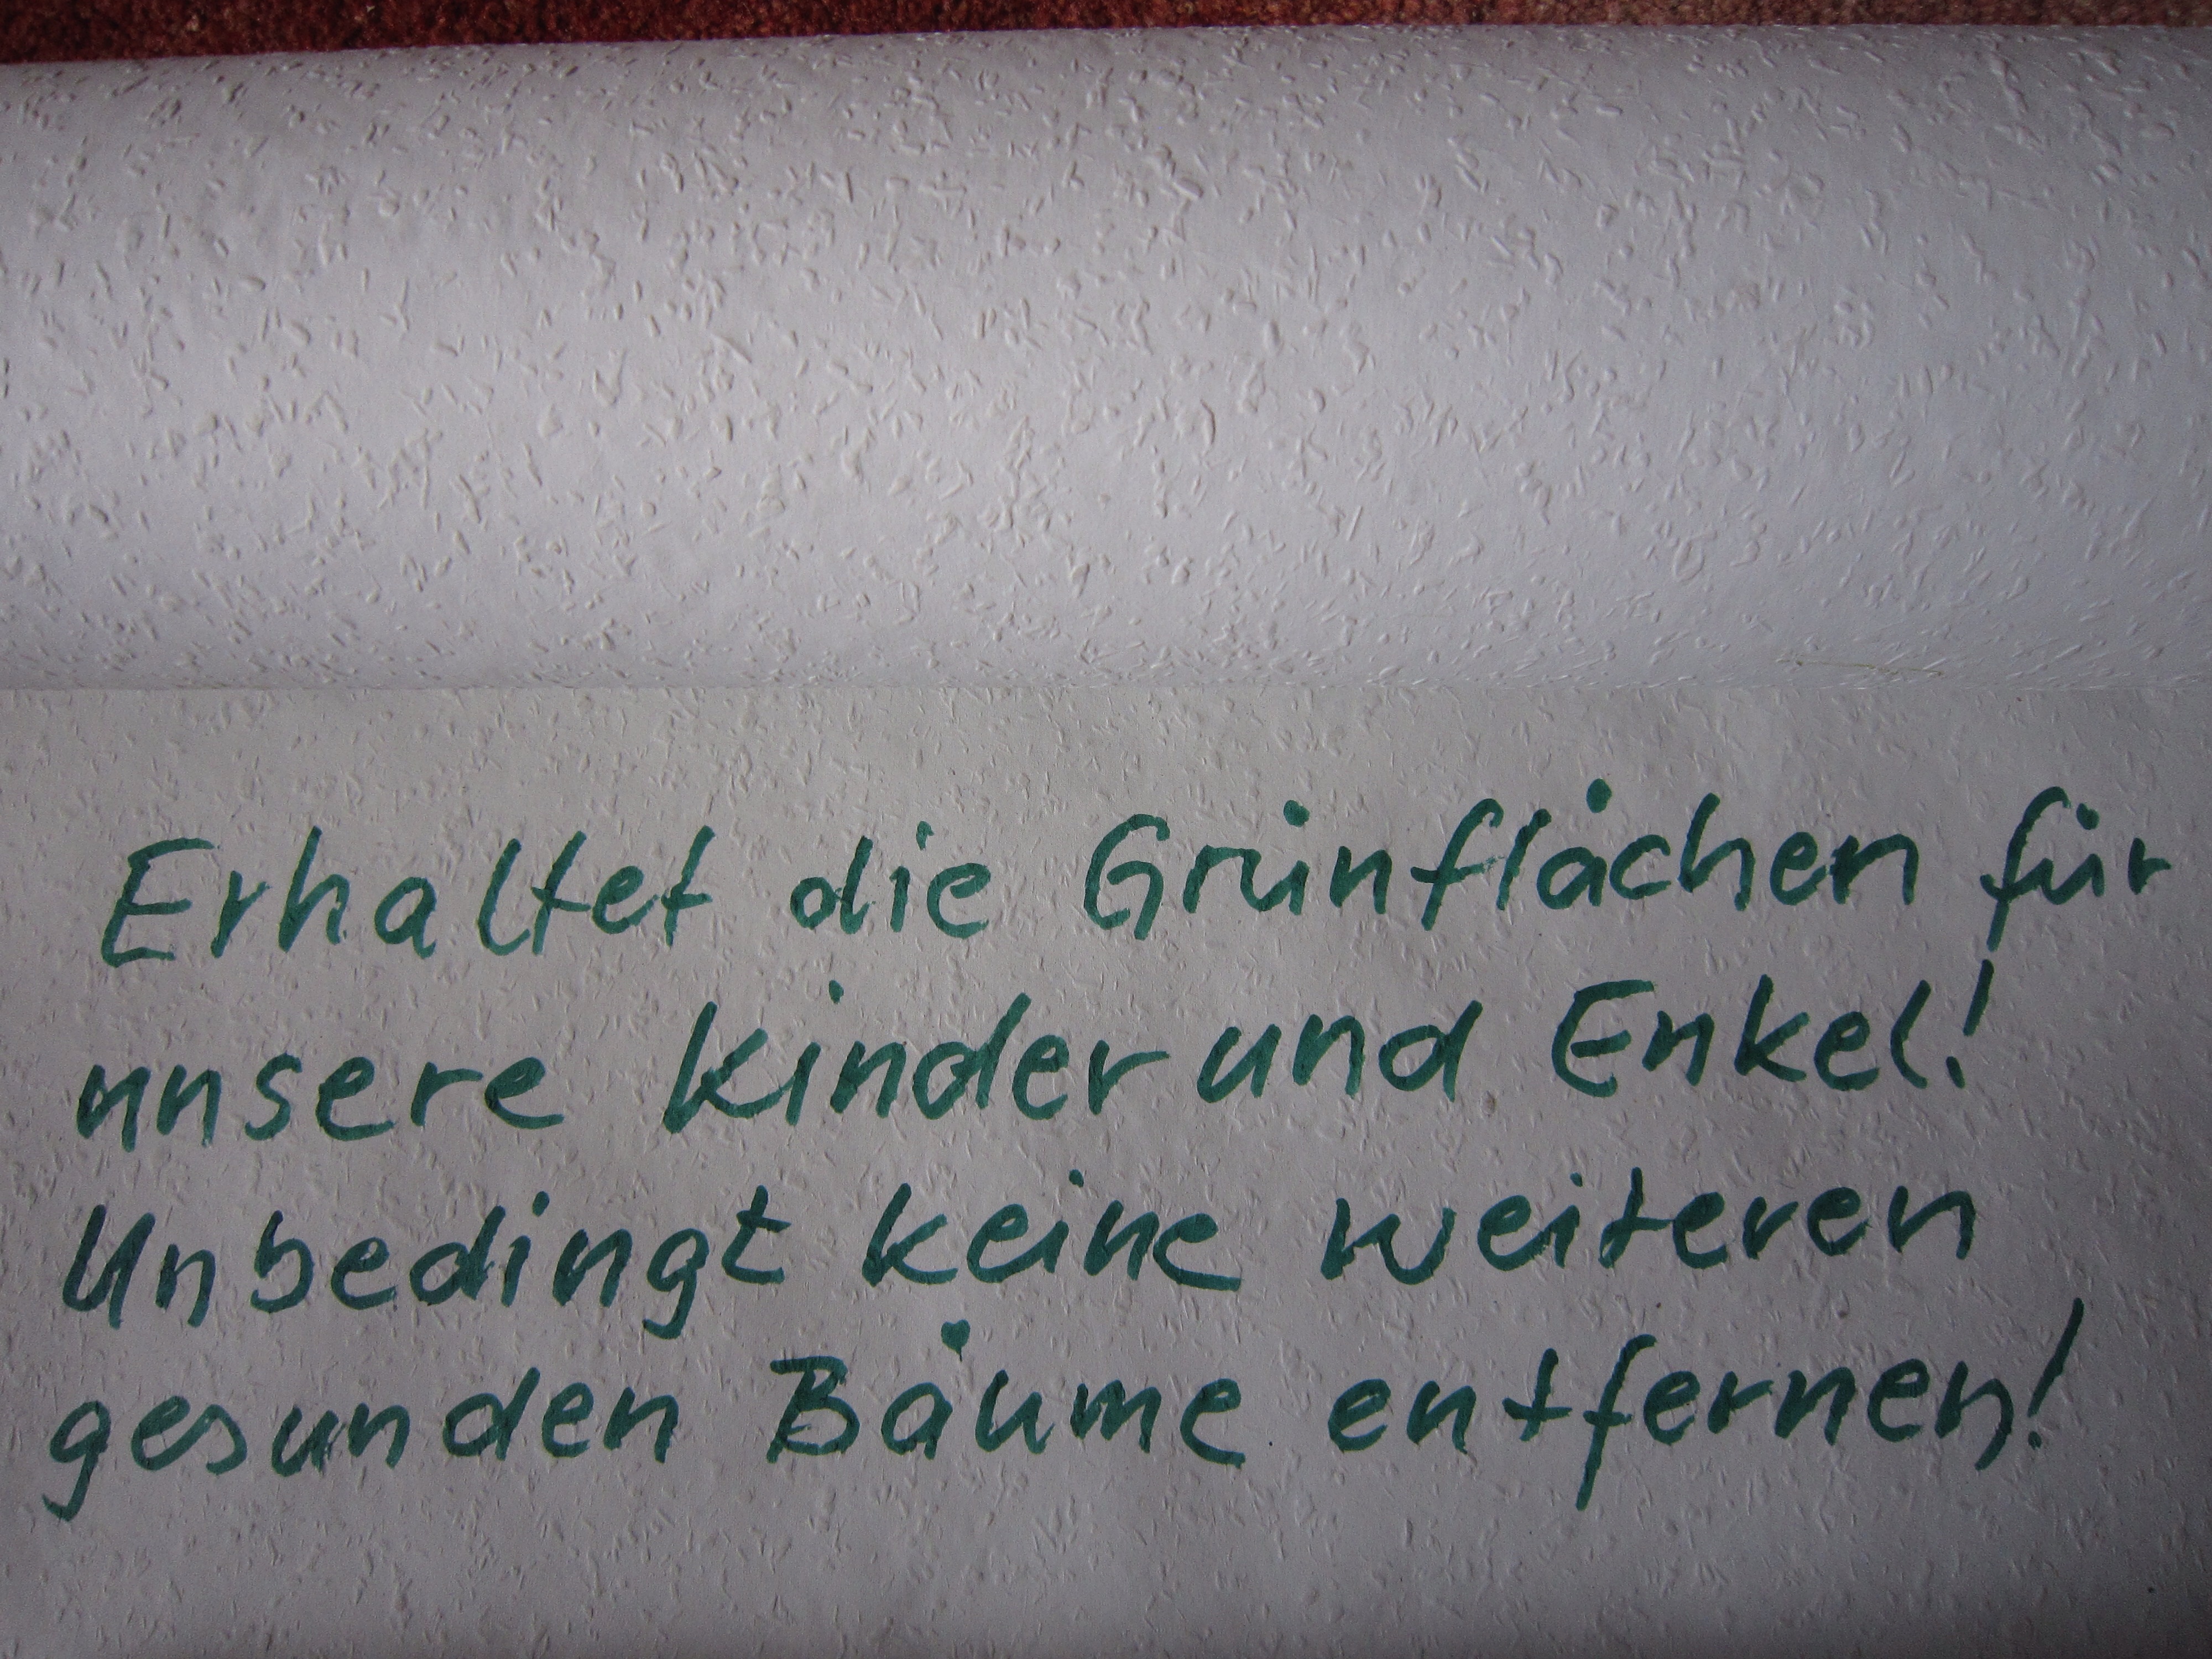 Erhaltet die Grünflächen für
unsere Kinder und Enkel!
Unbedingt keine weiteren
gesunden Bäume entfernen!